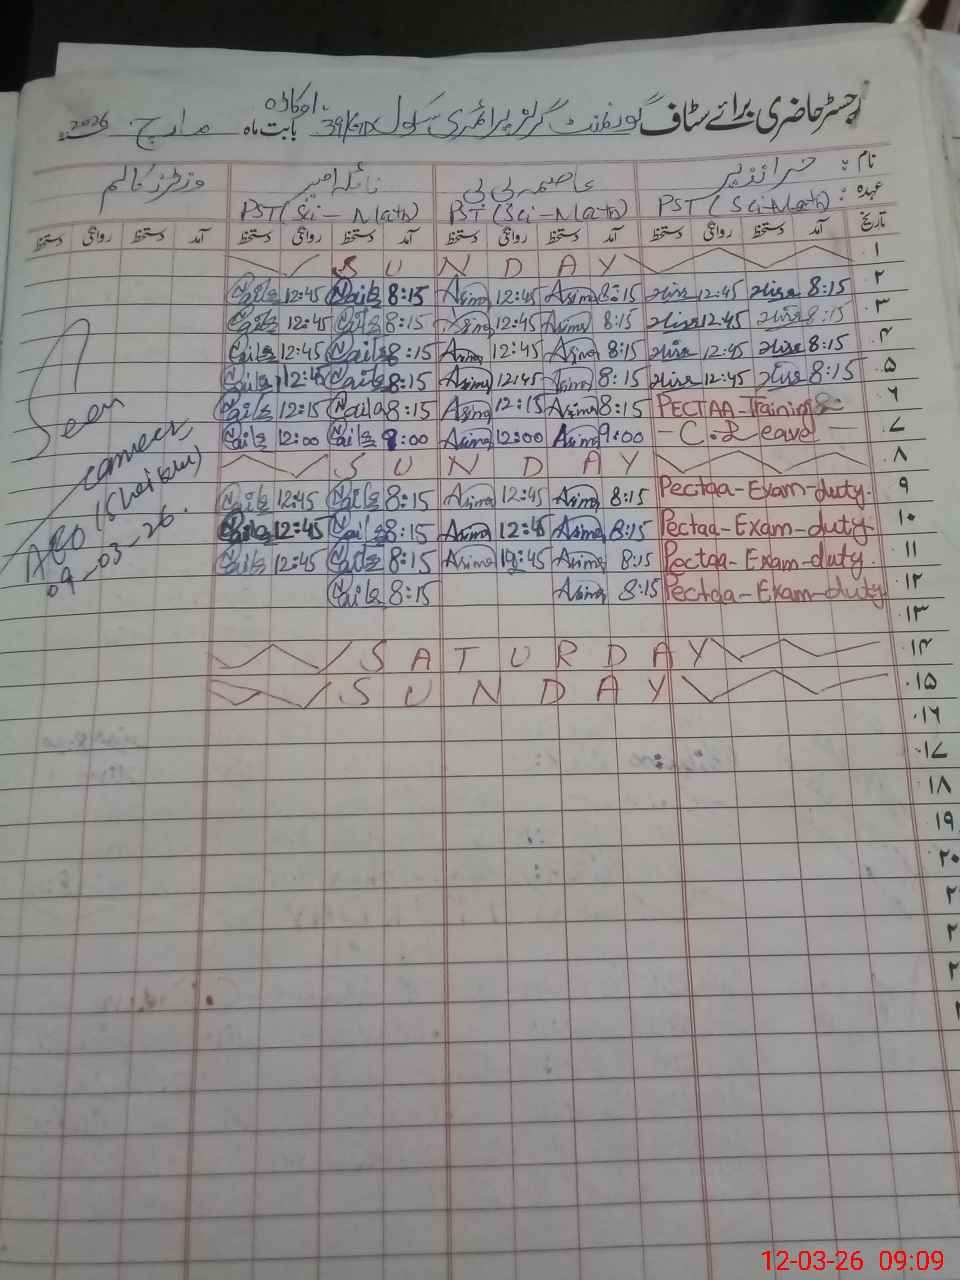 رجسٹر حاضری برائے سٹاف گورنمنٹ گرلز پرائمری سکول 39/GD اوکاڑہ بابت ماہ مارچ 2026
نام : عاصمہ بی بی وزٹرز کالم
عہدہ : PST (Sci-Math) PST (Sci-Math) PST (Sci-Math)
تاریخ آمد دستخط روانگی دستخط آمد دستخط روانگی دستخط آمد دستخط روانگی دستخط آمد دستخط روانگی دستخط
۱ SUNDAY
۲ 8:15 12:45 8:15 Asima 12:45 Asima 8:15 Naila 12:45 Naila
۳ 8:15 12:45 8:15 Asima 12:45 Asima 8:15 Naila 12:45 Naila
۴ 8:15 12:45 8:15 Asima 12:45 Asima 8:15 Naila 12:45 Naila
۵ 8:15 12:45 8:15 Asima 12:45 Asima 8:15 Naila 12:45 Naila
۶ PECTAA-Training 8:15 Asima 12:15 Asima 8:15 Naila 12:15 Naila
۷ - C.Leave - 9:00 Asima 12:00 Asima 9:00 Naila 12:00 Naila
۸ SUNDAY
۹ Pectaa-Exam-duty. 8:15 Asima 12:45 Asima 8:15 Naila 12:45 Naila
۱۰ Pectaa-Exam-duty. 8:15 Asima 12:45 Asima 8:15 Naila 12:45 Naila
۱۱ Pectaa-Exam-duty. 8:15 Asima 12:45 Asima 8:15 Naila 12:45 Naila
۱۲ Pectaa-Exam-duty 8:15 Asima 8:15 Naila
۱۳
۱۴ SATURDAY
۱۵ SUNDAY
۱۶
۱۷
۱۸
۱۹
۲۰
Seen
AEO
09-03-26.
12-03-26 09:09